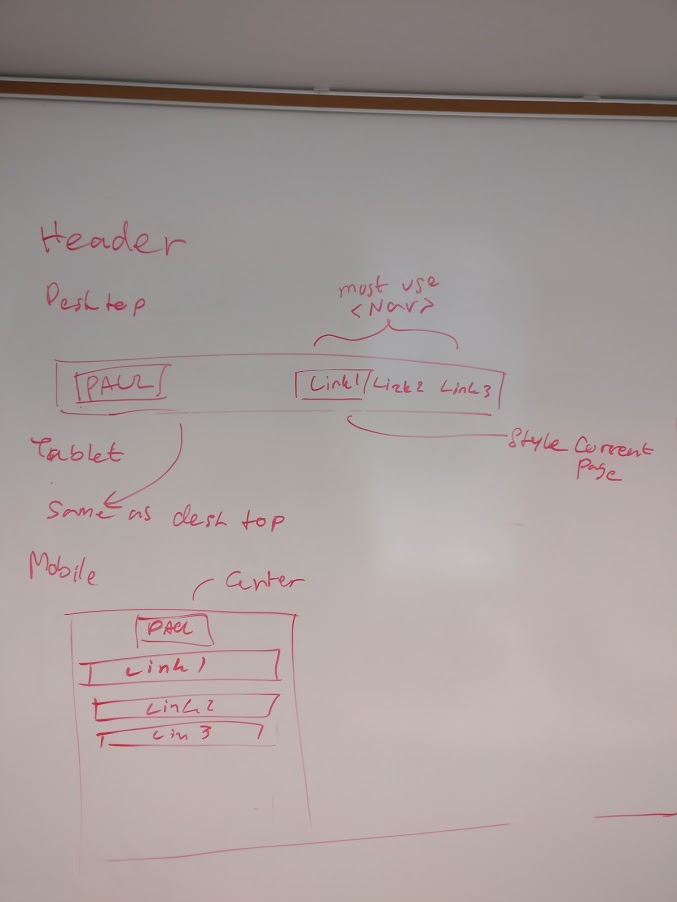 Header
Desktop
must use
<Nav>
Link1/Link2 Link3
Style Current
Page
Tablet
Same as desktop
Mobile
Center
Link1
Link2
Lin 3